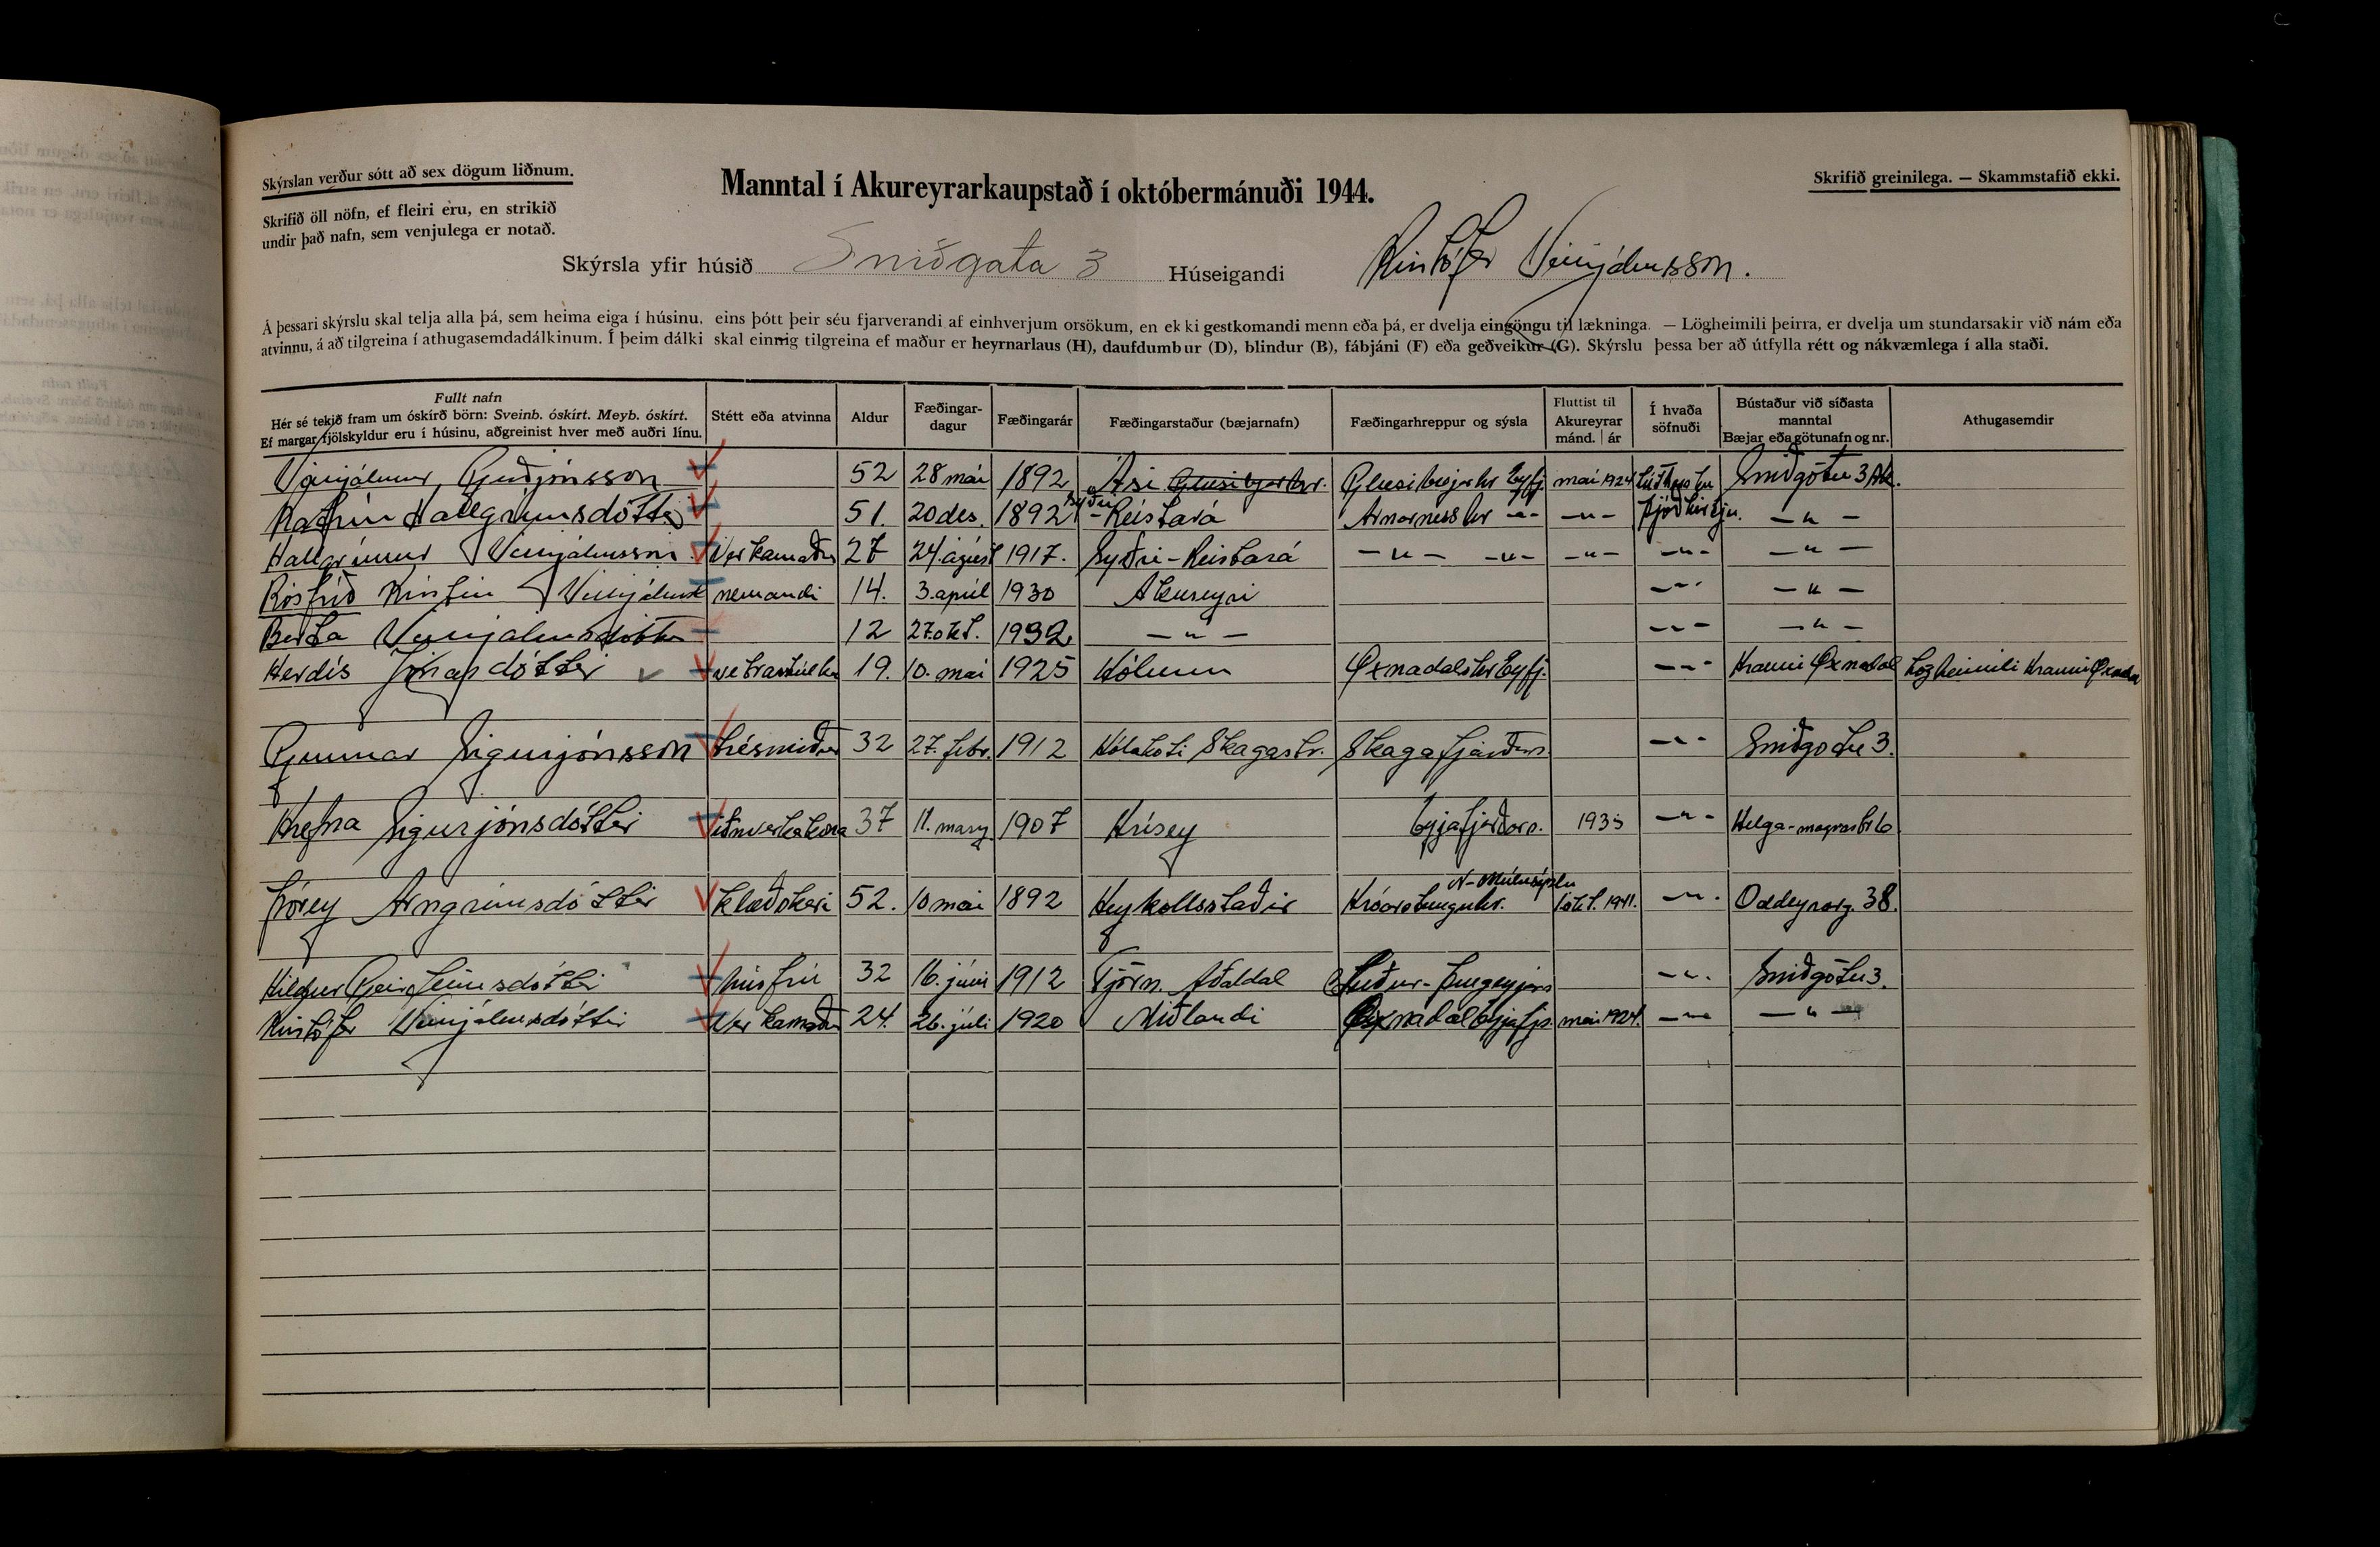 Skýrslan verður sótt að sex dögum liðnum.
Skrifið öll nöfn, ef fleiri eru, en strikið
undir það nafn, sem venjulega er notað.
Manntal í Akureyrarkaupstað í októbermánuði 1944.
Skrifið greinilega. — Skammstafið ekki.
Skýrsla yfir húsið Sniðgata 3 Húseigandi Kristófer Vilhjálmsson.
Á þessari skýrslu skal telja alla þá, sem heima eiga í húsinu, eins þótt þeir séu fjarverandi af einhverjum orsökum, en ekki gestkomandi menn eða þá, er dvelja eingöngu til lækninga. — Lögheimili þeirra, er dvelja um stundarsakir við nám eða
atvinnu, á að tilgreina í athugasemdadálkinum. Í þeim dálki skal einnig tilgreina ef maður er heyrnarlaus (H), daufdumbur (D), blindur (B), fábjáni (F) eða geðveikur (G). Skýrslu þessa ber að útfylla rétt og nákvæmlega í alla staði.
Fullt nafn
Hér sé tekið fram um óskírð börn: Sveinb. óskírt. Meyb. óskírt.
Ef margar fjölskyldur eru í húsinu, aðgreinist hver með auðri línu.
Stétt eða atvinna
Aldur
Fæðingar-
dagur
Fæðingarár
Fæðingarstaður (bæjarnafn)
Fæðingarhreppur og sýsla
Fluttist til
Akureyrar
mánd. | ár
Í hvaða
söfnuði
Bústaður við síðasta
manntal
Bæjar eða götunafn og nr.
Athugasemdir
Vilhjálmur Guðjónsson 52 28 mai 1892 Ási Glæsibæjarhr. Glæsibæjarhr Eyfj mai 1924 Sniðgötu 3 Ak.
Katrín Hallgrímsdóttir 51. 20 des. 1892 Syðri-Reistará Arnarness hr -"- -"- þjóðkirkju. -"-
Hallgrímur Vilhjálmsson Verkamaður 27 24. ágúst 1917. Syðri-Reistará -"- -"- -"- -"- -"-
Rósfríð Kristín Vilhjálmsd nemandi 14. 3. apríl 1930 Akureyri -"- -"-
Berta Vilhjálmsdóttir 12 27. okt. 1932. -"- -"- -"-
Herdís Jónasdóttir vetrarstúlka 19. 10. mai 1925 Hólum Øxnadalshr Eyfj. -"- Hrauni Øxnadal Lögheimili Hrauni Øxnadal
Gunnar Sigurjónsson trésmiður 32 27. febr. 1912 Hólakoti Skagastr. Skagafjarðurs. -"- Sniðgötu 3.
Hrefna Sigurjónsdóttir iðnverkakona 37 11. marz 1907 Hrísey Eyjafjarðars. 1935 -"- Helga-magrastr 6
Þórey Arngrímsdóttir klæðskeri 52. 10 mai 1892 Heykollsstaðir Hróarstunguhr. N-Múlasýslu 1 okt. 1941. -"- Oddeyrarg. 38.
Hildur Geirfinnsdóttir húsfrú 32 16. júni 1912 Tjörn. Aðaldal Suður-Þingeyjars -"- Sniðgötu 3.
Kristófer Vilhjálmsdóttir Verkamaður 24. 26. júli 1920 Miðlandi Øxnadal Eyjafjs. mai 1924. -"- -"-